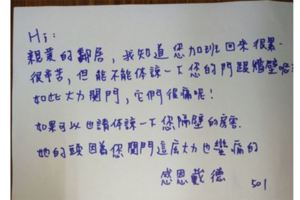 Hi:
親愛的鄰居，我知道您加班回來很累
很辛苦，但能不能体諒一下您的門跟牆壁呢
如此大力関門，它們很痛呢！
如果可以也請体諒一下您隔壁的房客
她的頭因著您関門這広大力也蠻痛的
感恩戴德
501